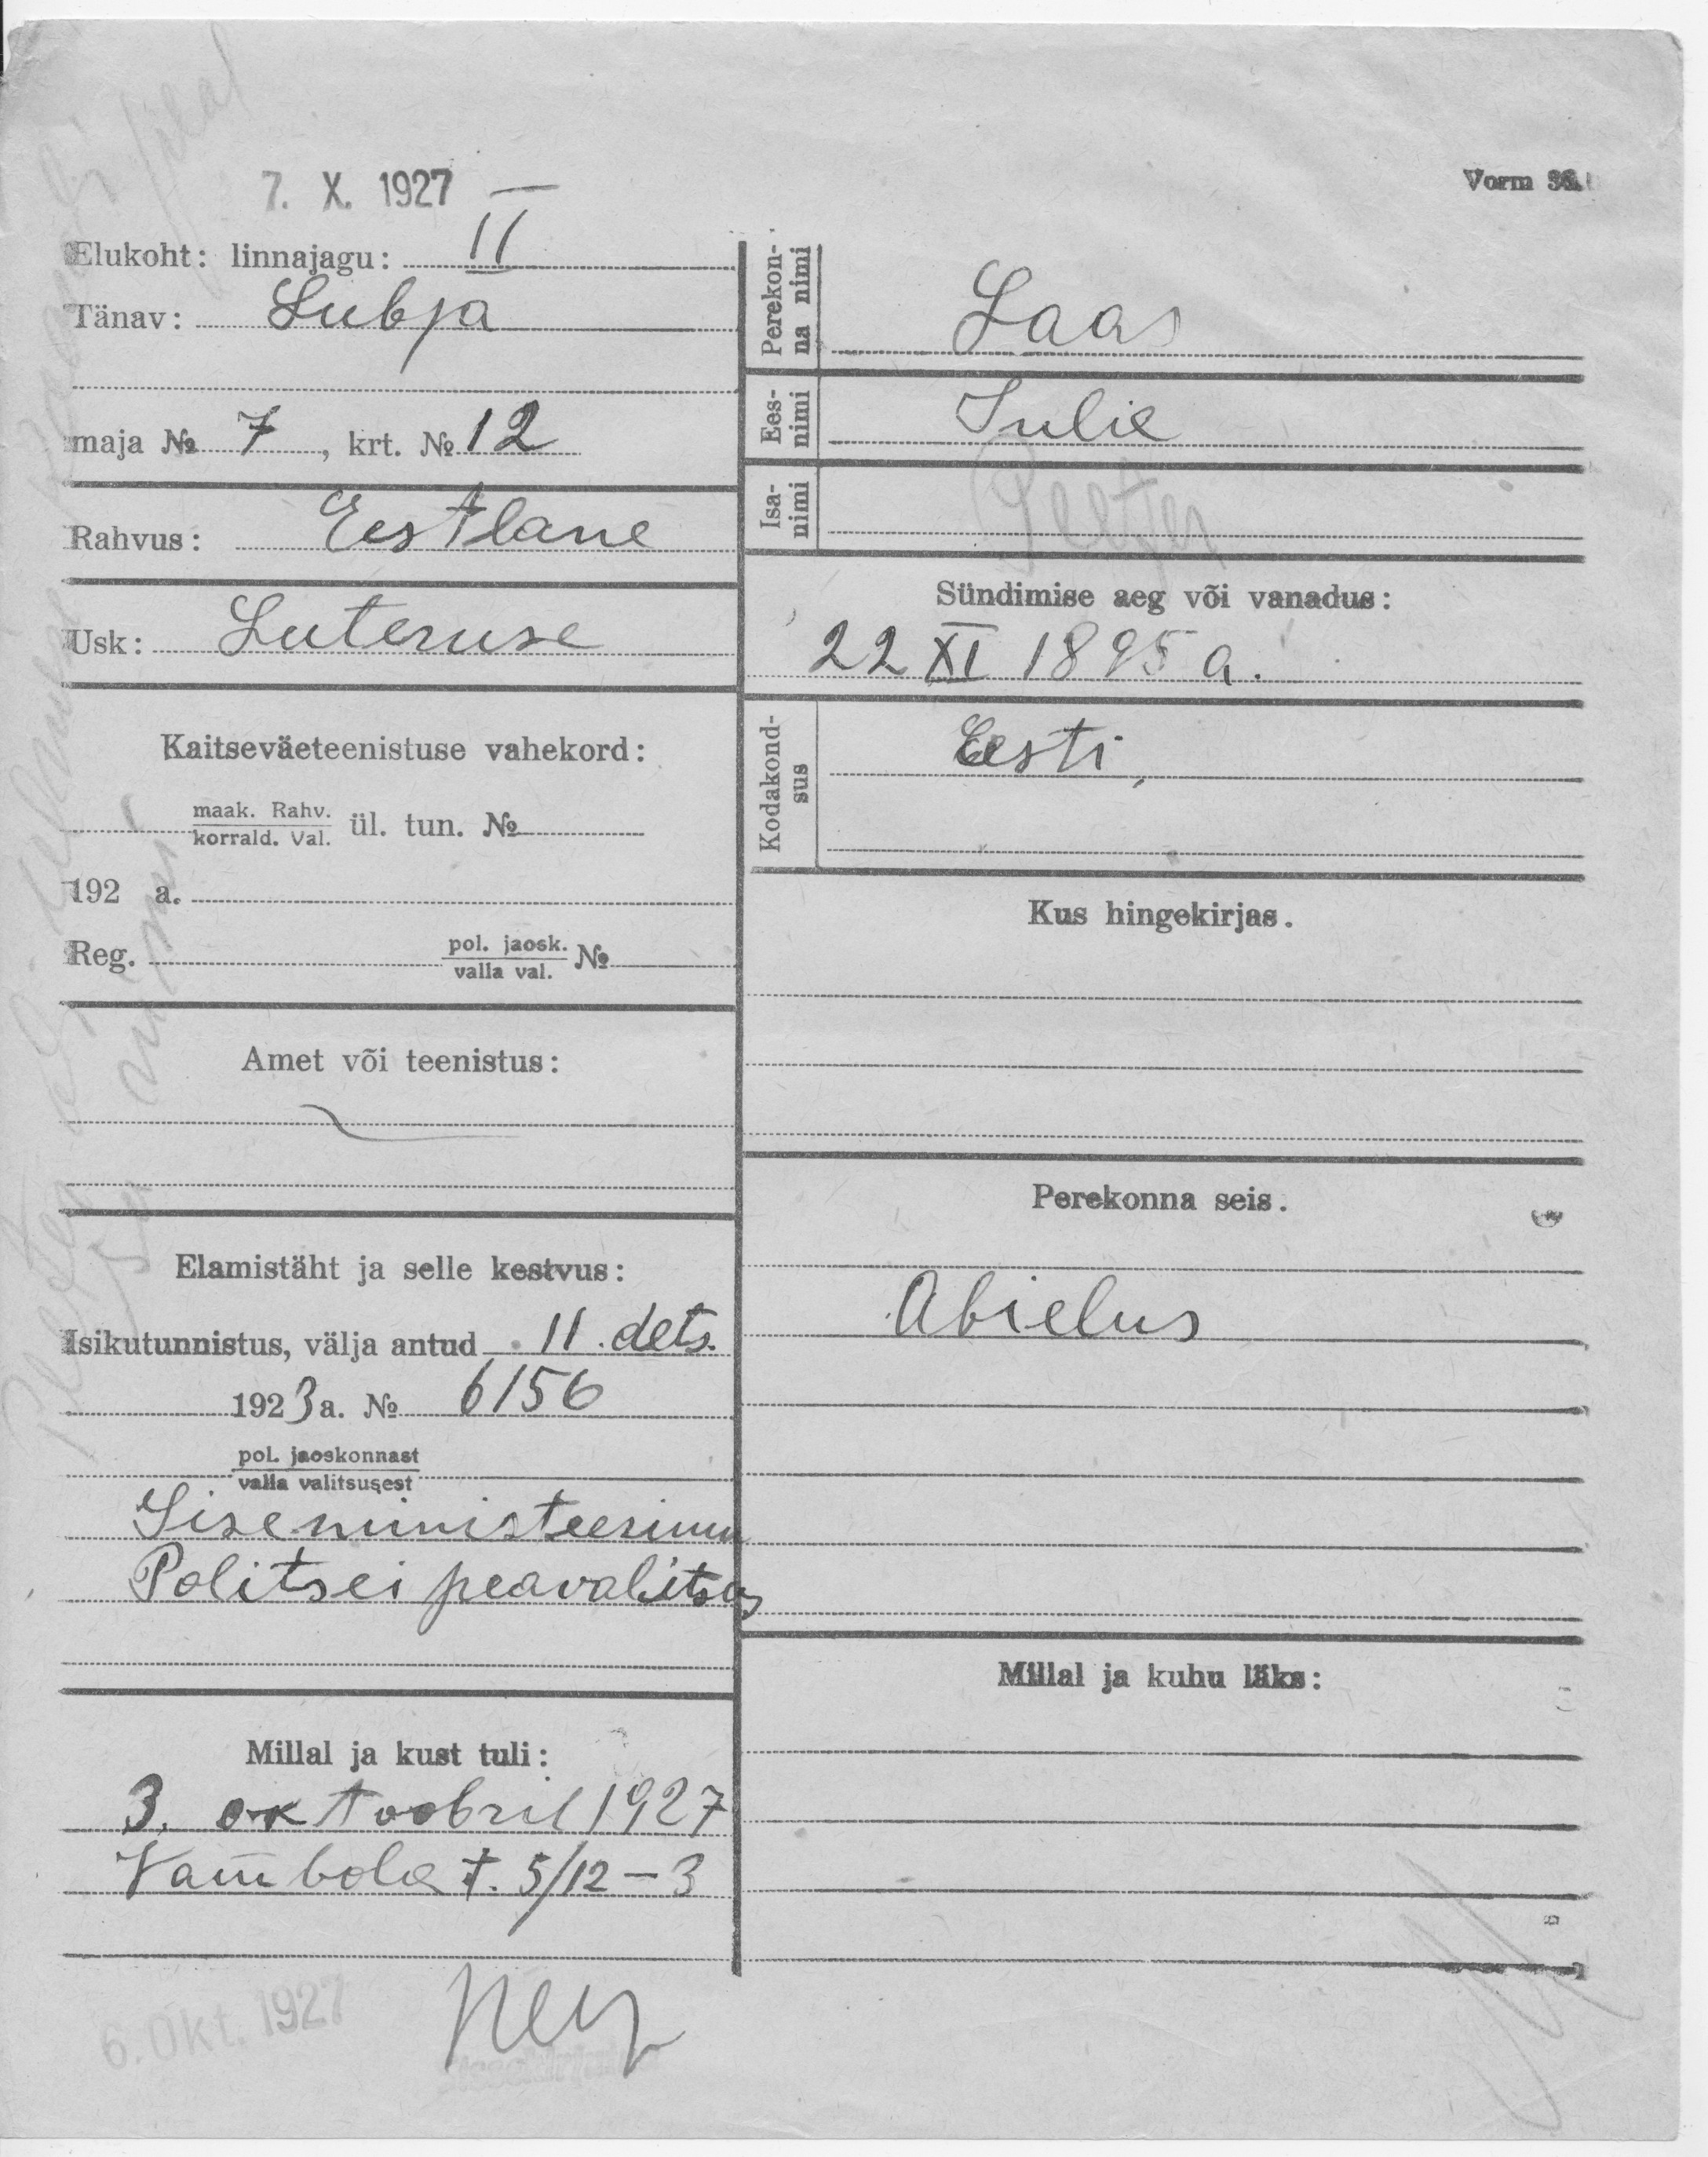 7. X. 1927
Vorm 36.
Elukoht: linnajagu: II
Tänav: Lubja
maja № 7, krt. № 12
Rahvus: Eestlane
Usk: Luteruse
Kaitseväeteenistuse vahekord:
maak. Rahv.
korrald. Val. ül. tun. №
192 a.
Reg. pol. jaosk. №
valla val.
Amet või teenistus:
Elamistäht ja selle kestvus:
Isikutunnistus, välja antud 11. dets.
1923 a. № 6156
pol. jaoskonnast
valla valitsusest
Siseministeerium
Politsei peavalitsus
Millal ja kust tuli:
3. oktoobril 1927
Vambola t. 5/12 – 3
6. Okt. 1927
Perekonna nimi Laas
Eesnimi Julie
Isanimi Peeter
Sündimise aeg või vanadus:
22 XI 1895 a.
Kodakondsus Eesti,
Kus hingekirjas.
Perekonna seis.
Abielus
Millal ja kuhu läks: